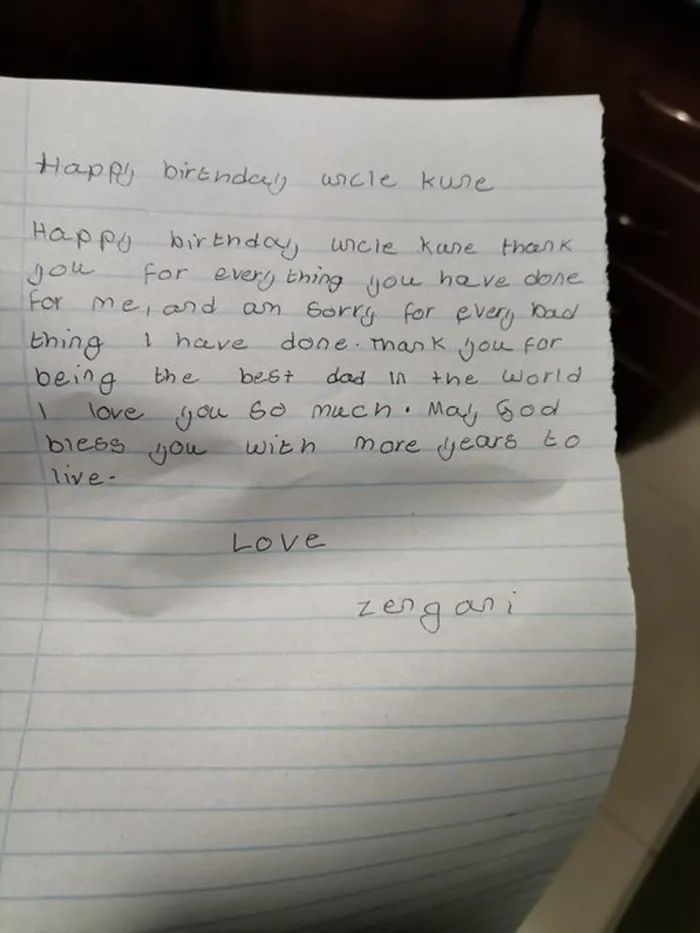 Happy birthday uncle kure
Happy birthday uncle kure thank
you for every thing you have done
for me, and am sorry for every bad
thing I have done. Thank you for
being the best dad in the world
I love you so much. May God
bless you with more years to
live.
Love
zengani